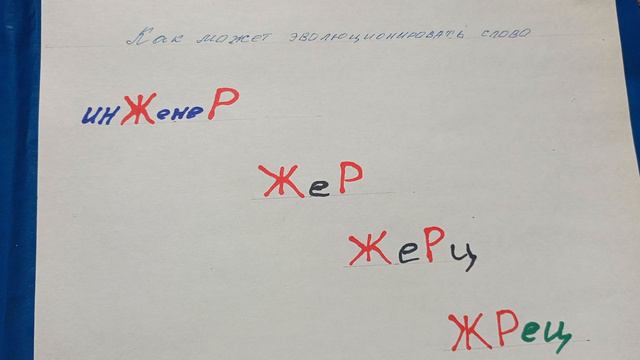 Как может эволюционировать слово
инЖенеР
ЖеР
ЖеРц
ЖРец